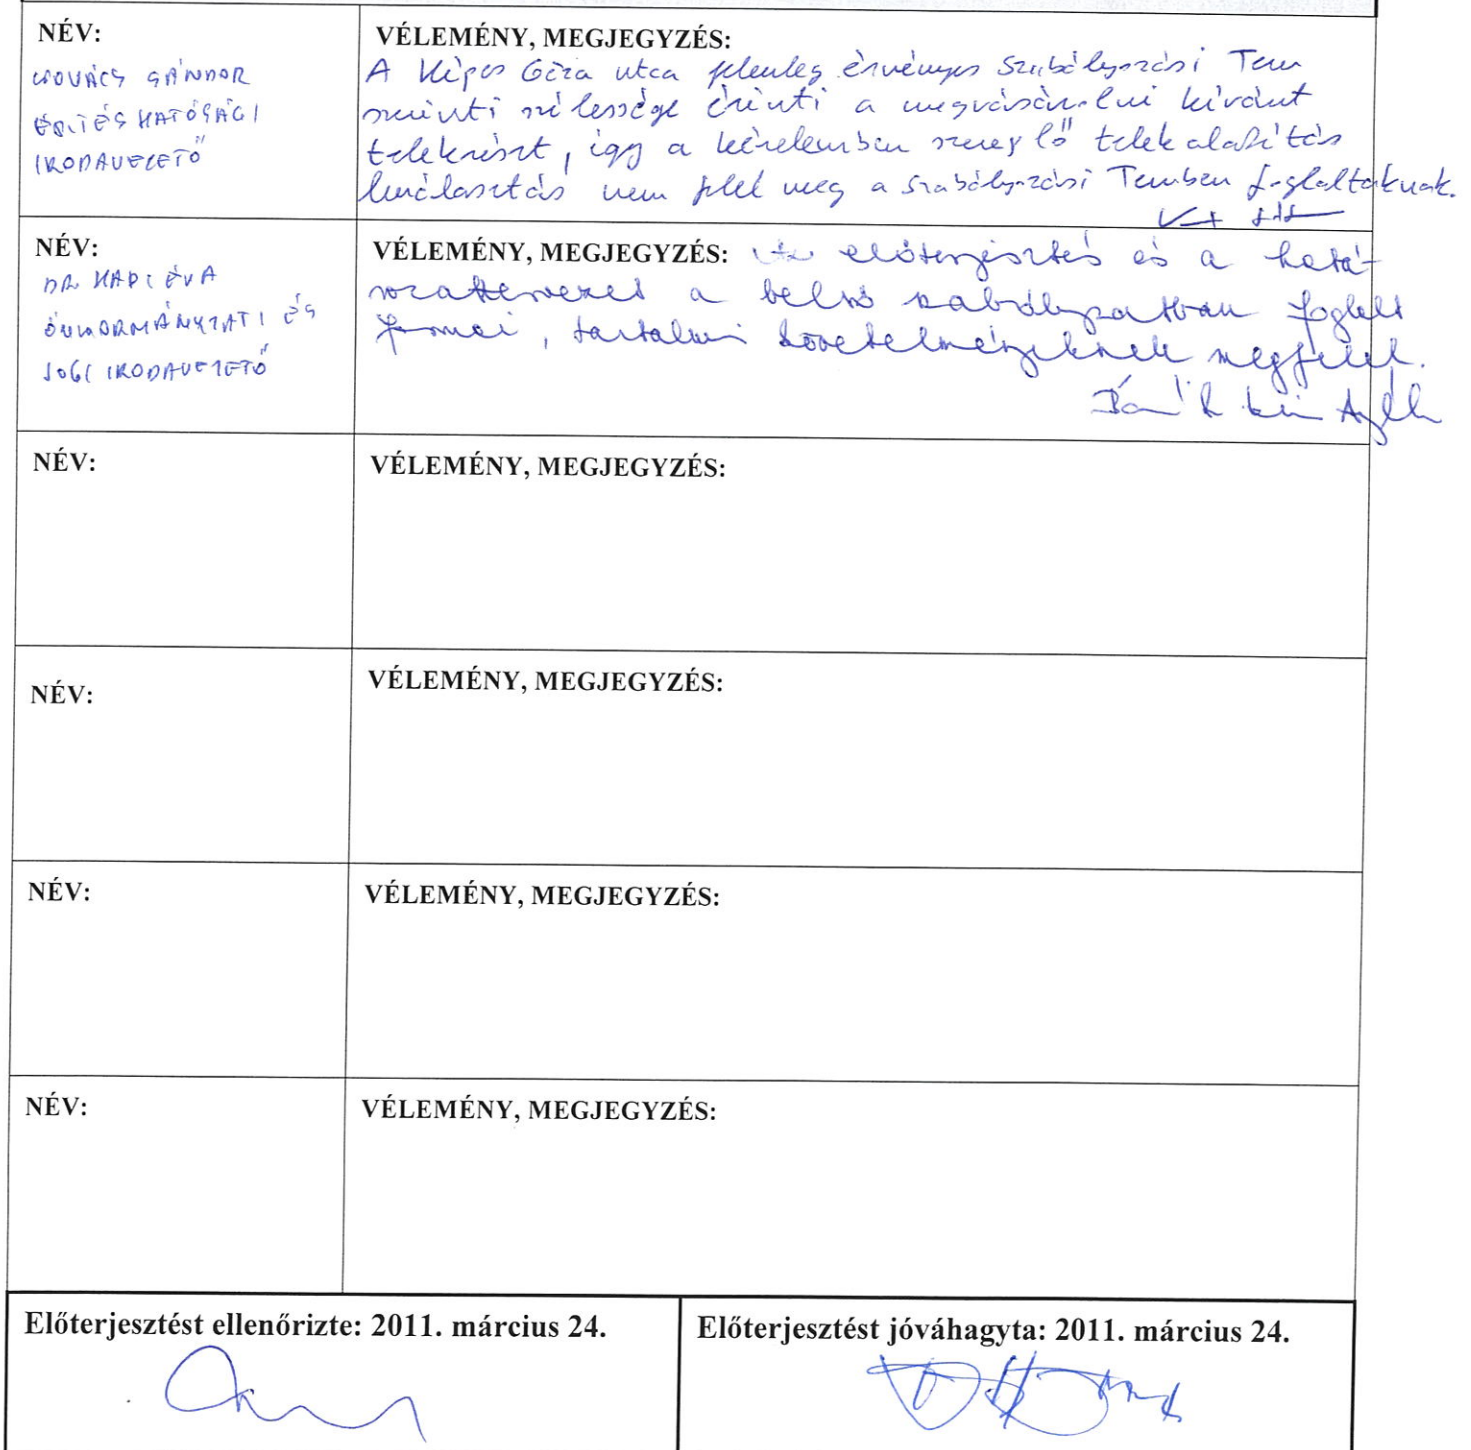 NÉV:
KOVÁCS SÁNDOR
ÉPÍTÉSHATÓSÁGI
IRODAVEZETŐ
VÉLEMÉNY, MEGJEGYZÉS:
A Képes Géza utca jelenleg érvényes Szabályozási Terv
szerinti szélessége érinti a megvásárolni kívánt
telekrészt, így a kérelemben szereplő telekalakítás
leválasztás nem felel meg a Szabályozási Tervben foglaltaknak.
NÉV:
DR. KÁDI ÉVA
ÖNKORMÁNYZATI ÉS
JOGI IRODAVEZETŐ
VÉLEMÉNY, MEGJEGYZÉS: Az előterjesztés és a hatá-
rozattervezet a belső szabályzatban foglalt
formai, tartalmi követelményeknek megfelel.
NÉV:
VÉLEMÉNY, MEGJEGYZÉS:
NÉV:
VÉLEMÉNY, MEGJEGYZÉS:
NÉV:
VÉLEMÉNY, MEGJEGYZÉS:
NÉV:
VÉLEMÉNY, MEGJEGYZÉS:
Előterjesztést ellenőrizte: 2011. március 24.
Előterjesztést jóváhagyta: 2011. március 24.